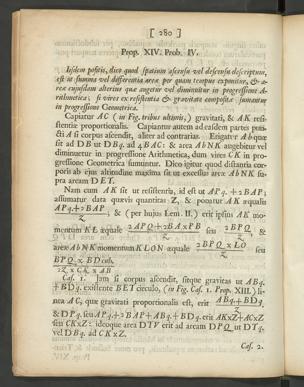 [ 280 ]
Prop. XIV. Prob. IV.
Iisdem positis, dico quod spatium ascensu vel descensu descriptum,
est ut summa vel differentia areæ per quam tempus exponitur, & a-
reæ cujusdam alterius quæ augetur vel diminuitur in progressione A-
rithmetica; si vires ex resistentia & gravitate compositæ sumantur
in progressione Geometrica.
Capiatur AC (in Fig. tribus ultimis,) gravitati, & AK resi-
stentiæ proportionalis. Capiantur autem ad easdem partes pun-
cti A si corpus ascendit, aliter ad contrarias. Erigatur Ab quæ
sit ad DB ut DBq. ad 4BAC: & area AbNK augebitur vel
diminuetur in progressione Arithmetica, dum vires CK in pro-
gressione Geometrica sumuntur. Dico igitur quod distantia cor-
poris ab ejus altitudine maxima sit ut excessus areæ AbNK su-
pra aream DET.
Nam cum AK sit ut resistentia, id est ut APq. + 2BAP;
assumatur data quævis quantitas Z, & ponatur AK æqualis
APq. + 2BAP / Z; & (per hujus Lem. II.) erit ipsius AK mo-
mentum KL æquale 2APQ + 2BA×PQ / Z seu 2BPQ / Z, &
areæ AbNK momentum KLON æquale 2BPQ × LO / Z seu
BPQ × BD cub. / 2Z × CK × AB
Cas. 1. Jam si corpus ascendit, sitque gravitas ut ABq.
+ BDq. existente BET circulo, (in Fig. Cas. 1. Prop. XIII.) li-
nea AC, quæ gravitati proportionalis est, erit ABq. + BDq. / Z
& DPq. seu APq. + 2BAP + ABq. + BDq. erit AK×Z + AC×Z
seu CK×Z: ideoque area DTV erit ad aream DPQ ut DTq.
vel DBq. ad CK×Z.
Cas. 2.